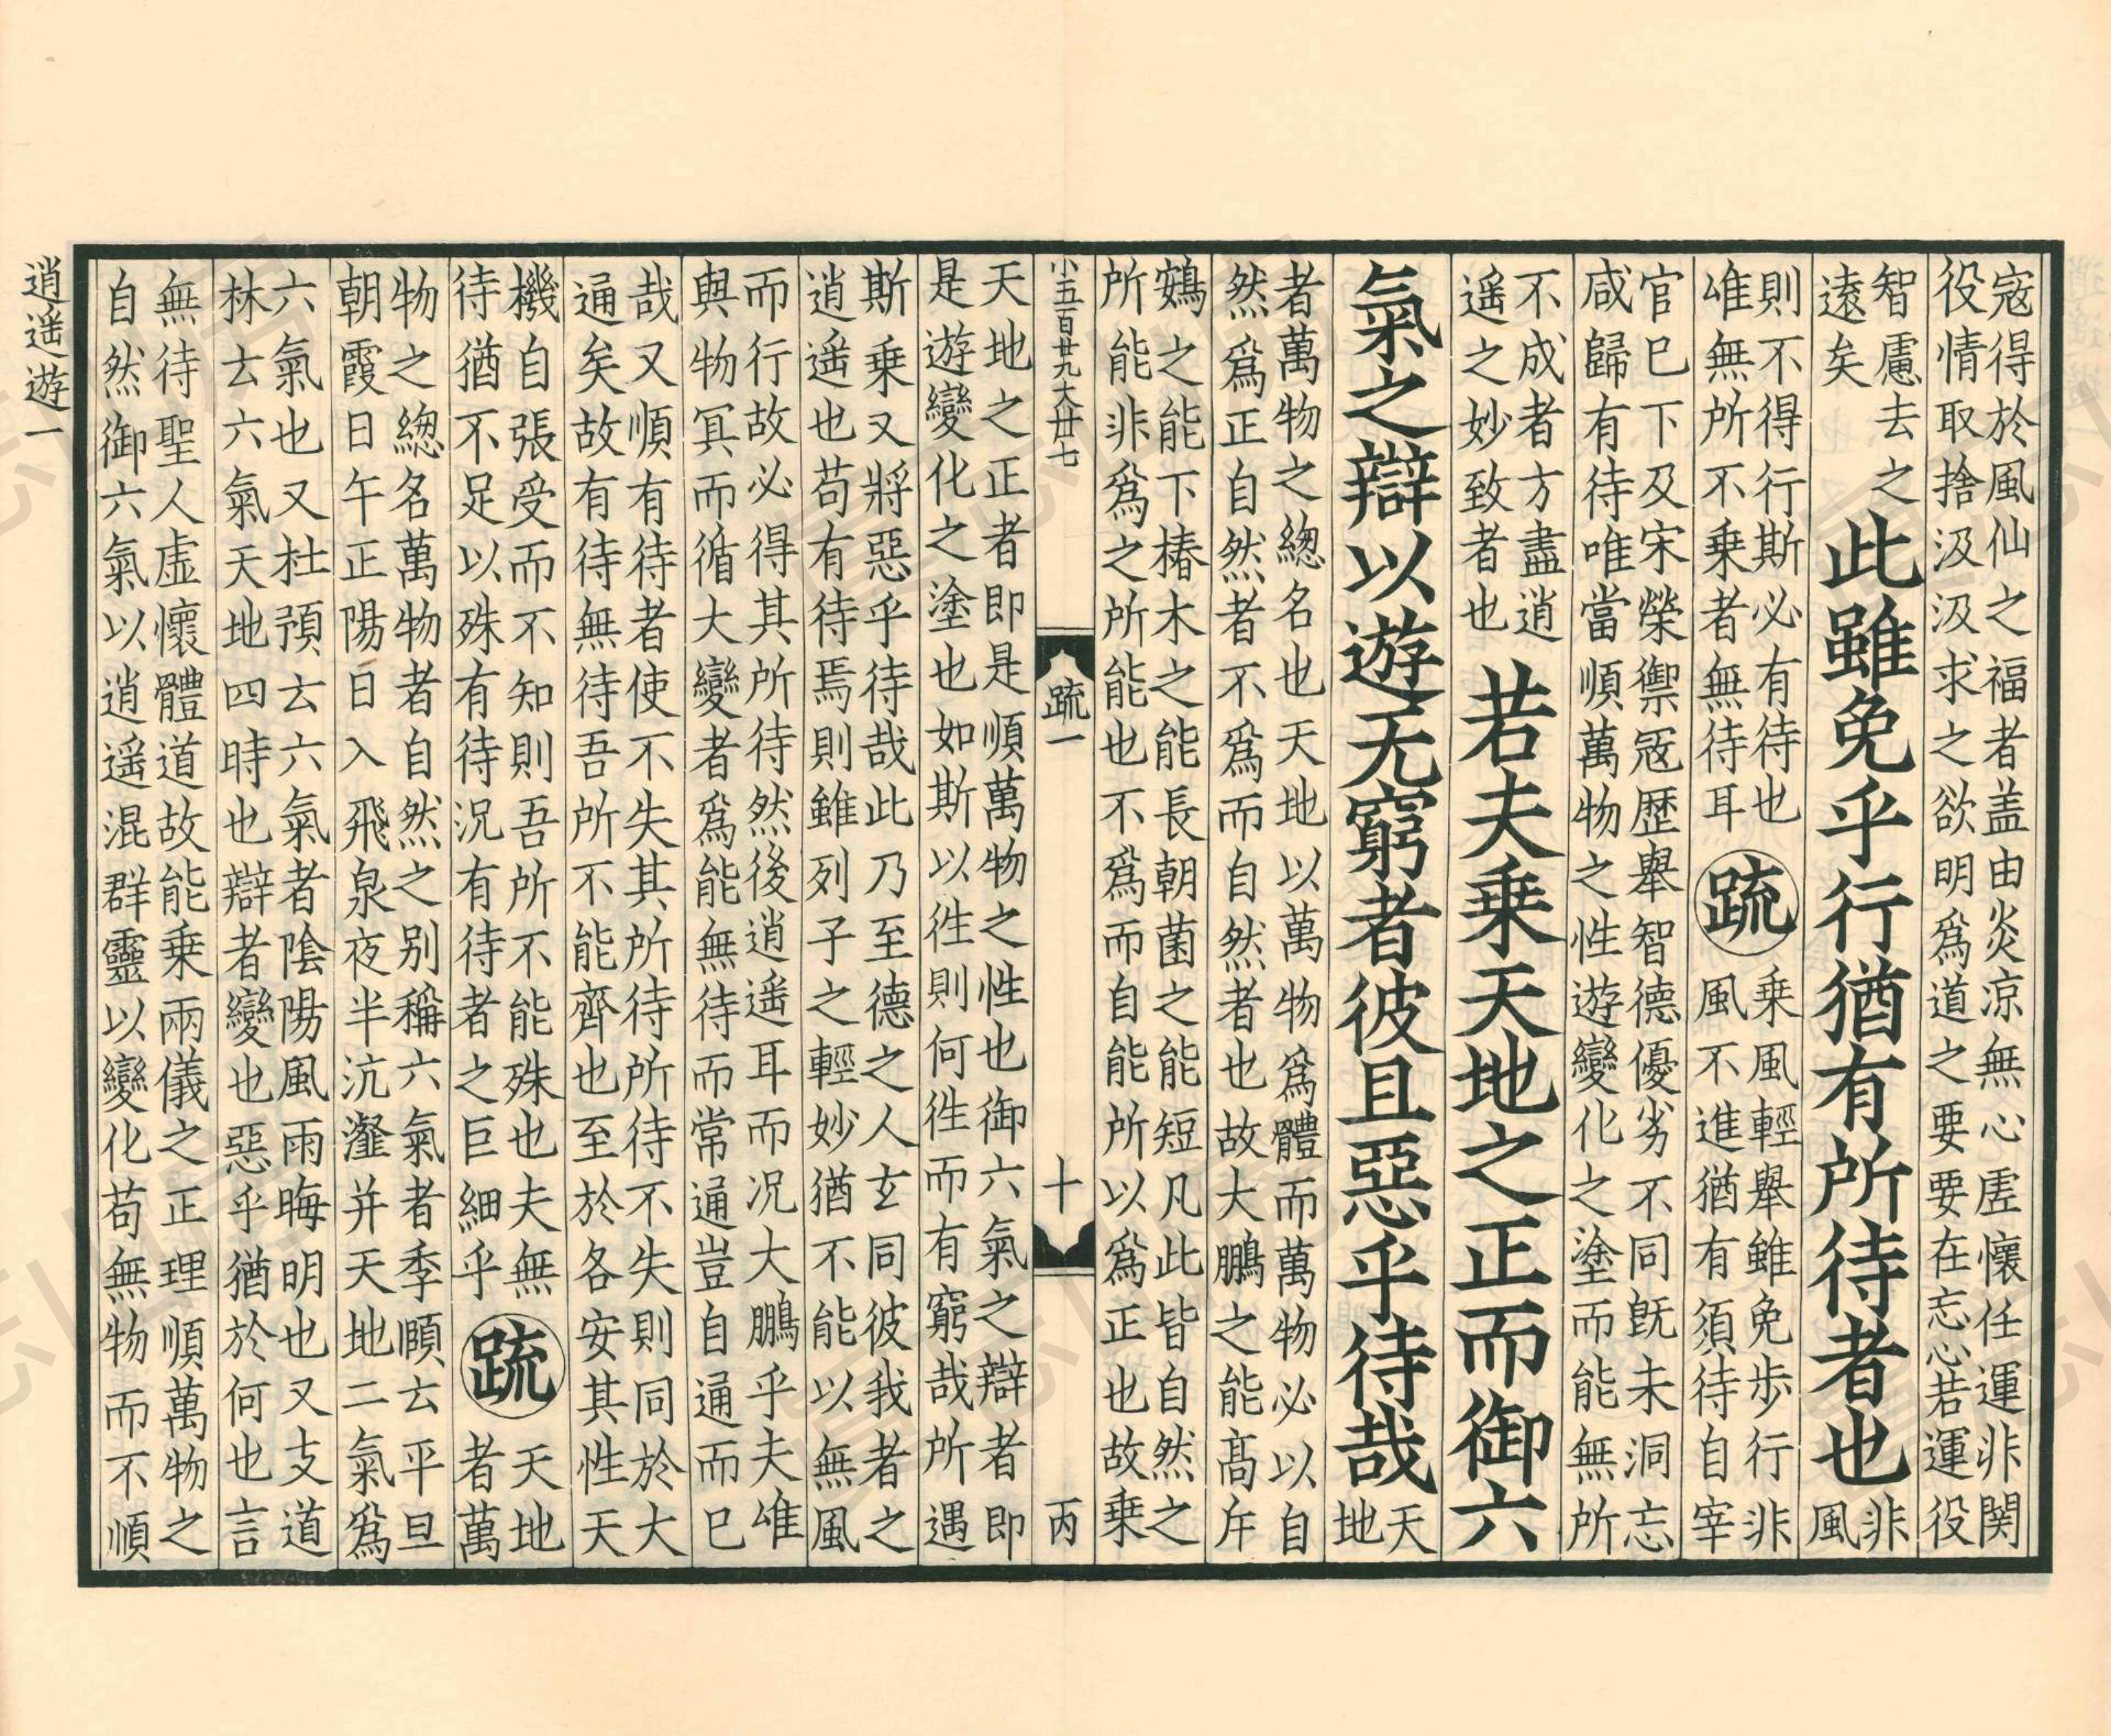 寇得於風仙之福者盖由炎凉無心虛懷任運非関
役情取捨汲汲求之欲明爲道之要要在忘心若運役
智慮去之
遠矣
此雖免乎行猶有所待者也
非
風
則不得行斯必有待也
唯無所不乗者無待耳
疏
乗風輕舉雖免步行非
風不進猶有須待自宰
官巳下及宋榮禦冦歴舉智德優劣不同旣未洞忘
咸歸有待唯當順萬物之性遊變化之塗而能無所
不成者方盡逍
遥之妙致者也
若夫乗天地之正而御六
氣之辯以遊无窮者彼且惡乎待哉
天
地
者萬物之緫名也天地以萬物爲體而萬物必以自
然爲正自然者不爲而自然者也故大鵬之能髙斥
鷃之能下椿木之能長朝菌之能短凡此皆自然之
所能非爲之所能也不爲而自能所以爲正也故乗
小五百廿九大廿七
疏一
十
丙
天地之正者即是順萬物之性也御六氣之辯者即
是遊變化之塗也如斯以徃則何徃而有窮哉所遇
斯乗又將惡乎待哉此乃至德之人玄同彼我者之
逍遥也苟有待焉則雖列子之輕妙猶不能以無風
而行故必得其所待然後逍遥耳而况大鵬乎夫唯
與物冥而循大變者爲能無待而常通豈自通而巳
哉又順有待者使不失其所待所待不失則同於大
通矣故有待無待吾所不能齊也至於各安其性天
機自張受而不知則吾所不能殊也夫無
待猶不足以殊有待况有待者之巨細乎
疏
天地
者萬
物之緫名萬物者自然之别稱六氣者季頤云平旦
朝霞日午正陽日入飛泉夜半沆瀣并天地二氣爲
六氣也又杜預云六氣者隂陽風雨晦明也又支道
林云六氣天地四時也辯者變也惡乎猶於何也言
無待聖人虚懷體道故能乗兩儀之正理順萬物之
自然御六氣以逍遥混群靈以變化苟無物而不順
逍遥遊一